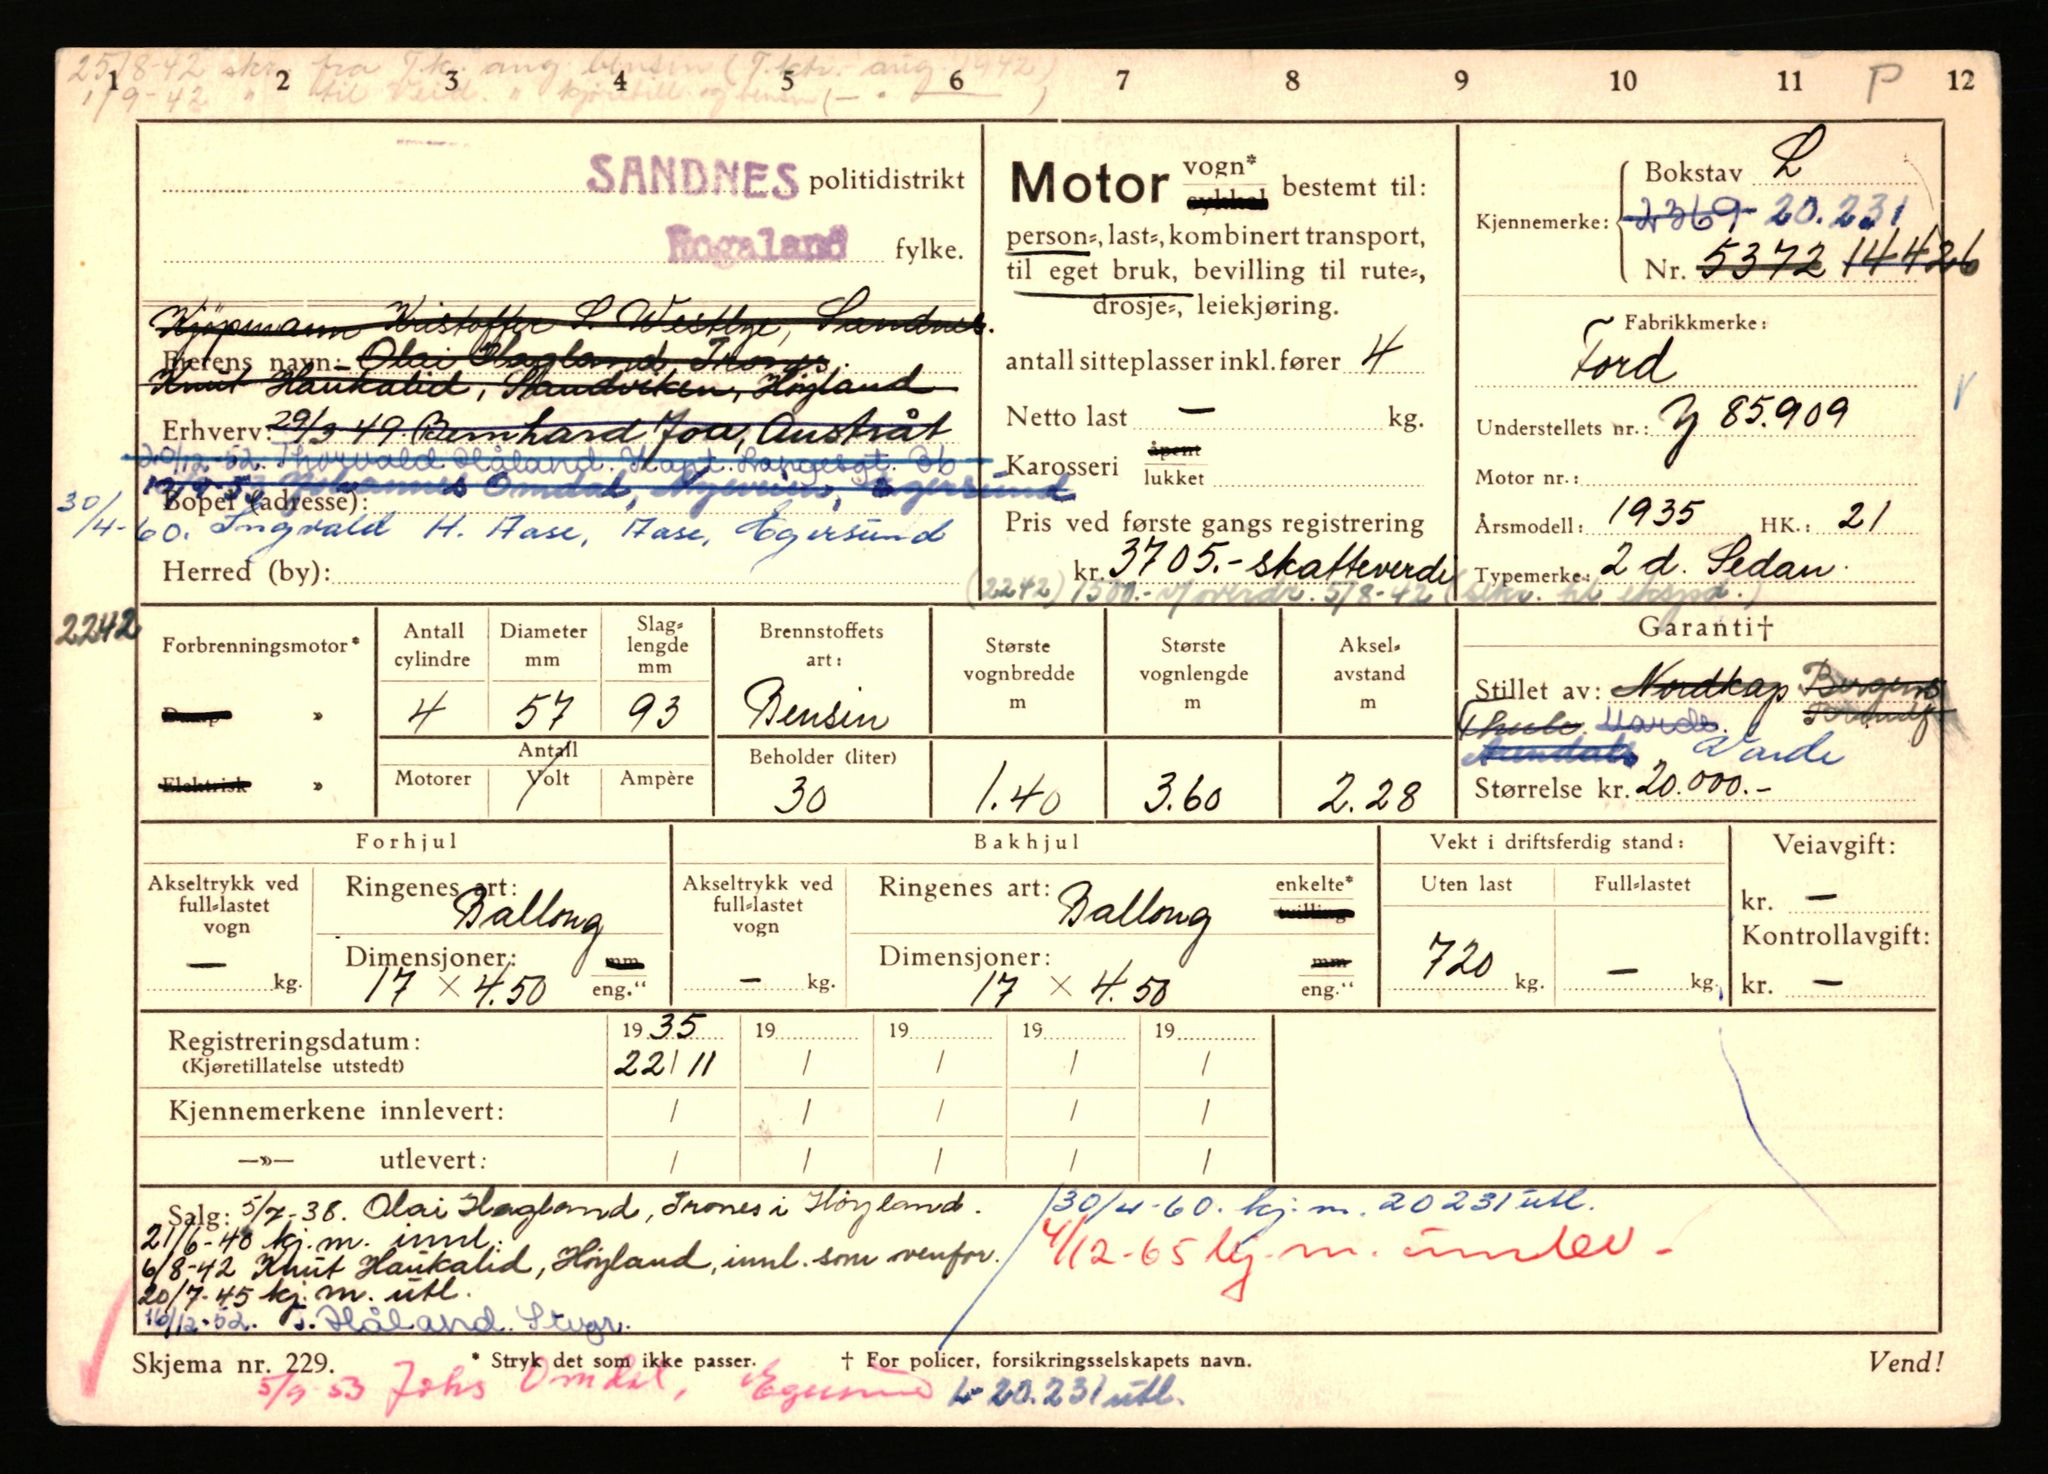 25/8-42 skr. fra T.k. ang. bensin (T.ktr. - aug. 1942)
1/9-42 " til Veid. " kjøretill. og bensin ( - " - )
1 2 3 4 5 6 7 8 9 10 11 P 12
SANDNES politidistrikt
Rogaland fylke.
Kjöpmann Kristoffer L. Westlye, Sandnes.
Eierens navn: Olai Hagland Trones.
Knut Haukalid, Sandviken, Høyland
Erhverv: 29/3 49. Bernhard Joa, Austråt
20/12-52. Thorvald Håland. Kapt. Langesgt. 36
Johannes Omdal, Egersund
Bopel (adresse):
30/4-60. Ingvald H. Aase, Aase, Egersund
Herred (by):
Motor vogn* sykkel bestemt til:
person-, last-, kombinert transport,
til eget bruk, bevilling til rute-,
drosje-, leiekjøring.
antall sitteplasser inkl. fører 4
Netto last — kg.
Karosseri åpent lukket
Pris ved første gangs registrering
kr. 3705.- skatteverdi
(2242) 1500.- v/overdr. 5/8-42 (skr. til eksped.)
Kjennemerke: Bokstav L
2369 20.231
Nr. 5372 14426
Fabrikkmerke:
Ford
Understellets nr.: Y 85.909
Motor nr.:
Årsmodell: 1935 HK.: 21
Typemerke: 2 d. Sedan.
2242
Forbrenningsmotor*
Damp »
Elektrisk »
Antall cylindre 4
Diameter mm 57
Slaglengde mm 93
Antall
Motorer Volt Ampère
Brennstoffets art: Bensin
Beholder (liter) 30
Største vognbredde m 1.40
Største vognlengde m 3.60
Akselavstand m 2.28
Garanti†
Stillet av: Nordkap Bergens
Thule Varde
Varde
Størrelse kr. 20.000.-
Forhjul
Akseltrykk ved full-lastet vogn — kg.
Ringenes art: Ballong
Dimensjoner: 17 × 4.50 mm eng."
Bakhjul
Akseltrykk ved full-lastet vogn — kg.
Ringenes art: Ballong enkelte* tvilling
Dimensjoner: 17 × 4.50 mm eng."
Vekt i driftsferdig stand:
Uten last 720 kg.
Full-lastet — kg.
Veiavgift:
kr. —
Kontrollavgift:
kr. —
Registreringsdatum: 19 35 19 19 19 19
(Kjøretillatelse utstedt) 22/11 / / / /
Kjennemerkene innlevert: / / / / /
—»— utlevert: / / / / /
Salg: 5/7-38. Olai Hagland, Trones i Høyland.
21/6-40 kj.m. innl.
6/8-42 Knut Haukalid, Høyland, innl. som ovenfor.
20/7-45 kj. m. utl.
16/12-52. T. Håland. Stvgr.
30/4-60. kj. m. 20231 utl.
4/12-65 kj. m. innlev -
Skjema nr. 229. * Stryk det som ikke passer. † For policer, forsikringsselskapets navn. Vend!
5/9 53 Johs Omdal, Egersund L-20.231 utl.